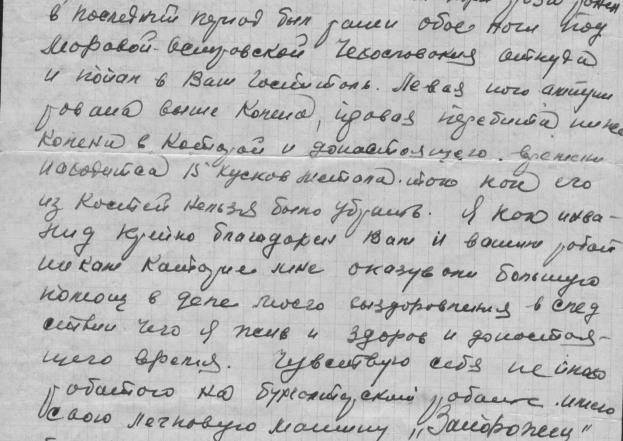 в последний период был ранен обое ноги под
Моравой-Островской Чехословакия откуда
и попал в Ваш Госпиталь. Левая нога ампути
рована выше колена, правая перебита ниже
колена в которой и донастоящего времени
находитса 15 кусков метала. так как его
из костей нельзя было убрать. Я как инва-
лид крепко благодарен Вам и вашим работ
никам которые мне оказували большую
помощ в деле моего выздоровления в след
ствии чего я жив и здоров и донастоя-
щего время. Чувствую себя не плохо
работаю на бухгалтерский работе. имею
свою легковую машину „Запорожец"